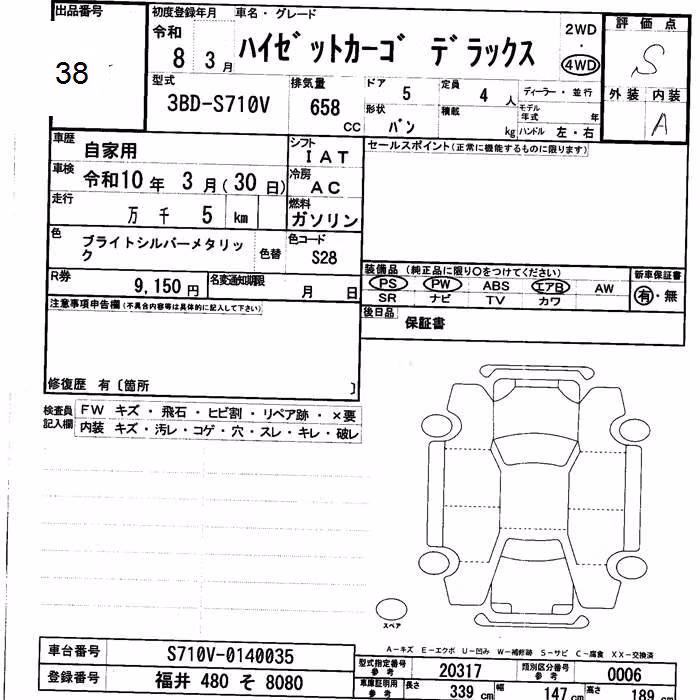 出品番号
38
初度登録年月
令和
8 3月
車名・グレード
ハイゼットカーゴ デラックス
2WD
・
4WD
評価点
S
外装 内装
A
型式
3BD-S710V
排気量
658
CC
ドア
5
定員
4 人
ディーラー・並行
モデル年式 年
形状
バン
積載
kg
ハンドル 左・右
車歴
自家用
シフト
IAT
車検
令和10年 3月(30日)
冷房
AC
走行
万 千 5 km
燃料
ガソリン
色
ブライトシルバーメタリック
色替
色コード
S28
R券
9,150円
名変通知期限
月 日
セールスポイント(正常に機能するものに限ります)
装備品(純正品に限り○をつけてください)
PS PW ABS エアB AW
SR ナビ TV カワ
新車保証書
有・無
後日品
保証書
注意事項申告欄(不具合内容等は具体的に記入して下さい)
修復歴 有〔箇所 〕
検査員記入欄
FW キズ・飛石・ヒビ割・リペア跡・×要
内装 キズ・汚レ・コゲ・穴・スレ・キレ・破レ
スペア
A-キズ E-エクボ U-凹み W-補修跡 S-サビ C-腐食 XX-交換済
車台番号
S710V-0140035
登録番号
福井 480 そ 8080
型式指定番号
参考
20317
類別区分番号
参考
0006
車庫証明用
参考
長さ 339 cm
幅 147 cm
高さ 189 cm